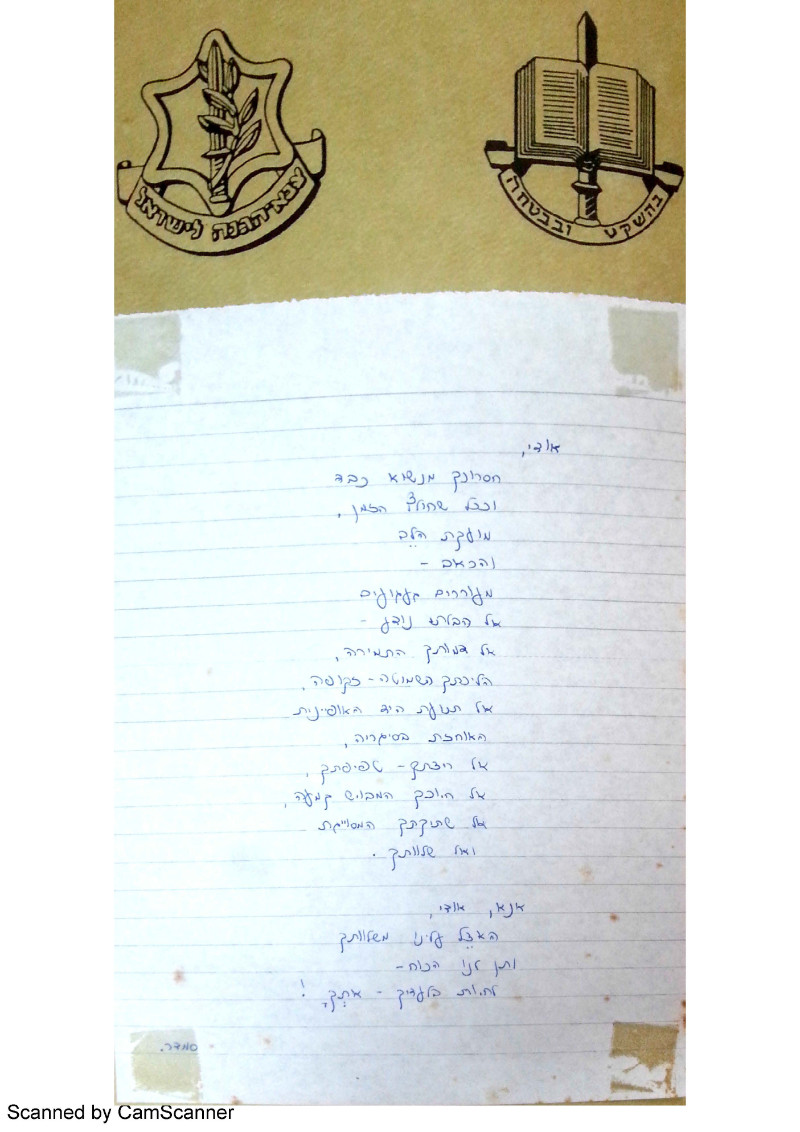 צבא הגנה לישראל
בהשקט ובבטחה
אודי,
חסרונך מנשוא כבד
וככל שחולף הזמן,
מועקת הלב
והכאב -
מעוררים געגועים
אל הבלתי נודע -
אל דמותך התמירה,
הליכתך השמוטה - זקופה,
אל תנועת היד האופיינית
האוחזת בסיגריה,
אל ריצתך - טפיפתך,
אל חיוכך המבויש קמעה,
אל שתיקתך המסוייגת
ואל שלוותך.
אנא, אודי,
האצל עלינו משלוותך
ותן לנו הכוח -
לחיות בלעדיך - אִתְּךָ!
סמדר.
Scanned by CamScanner